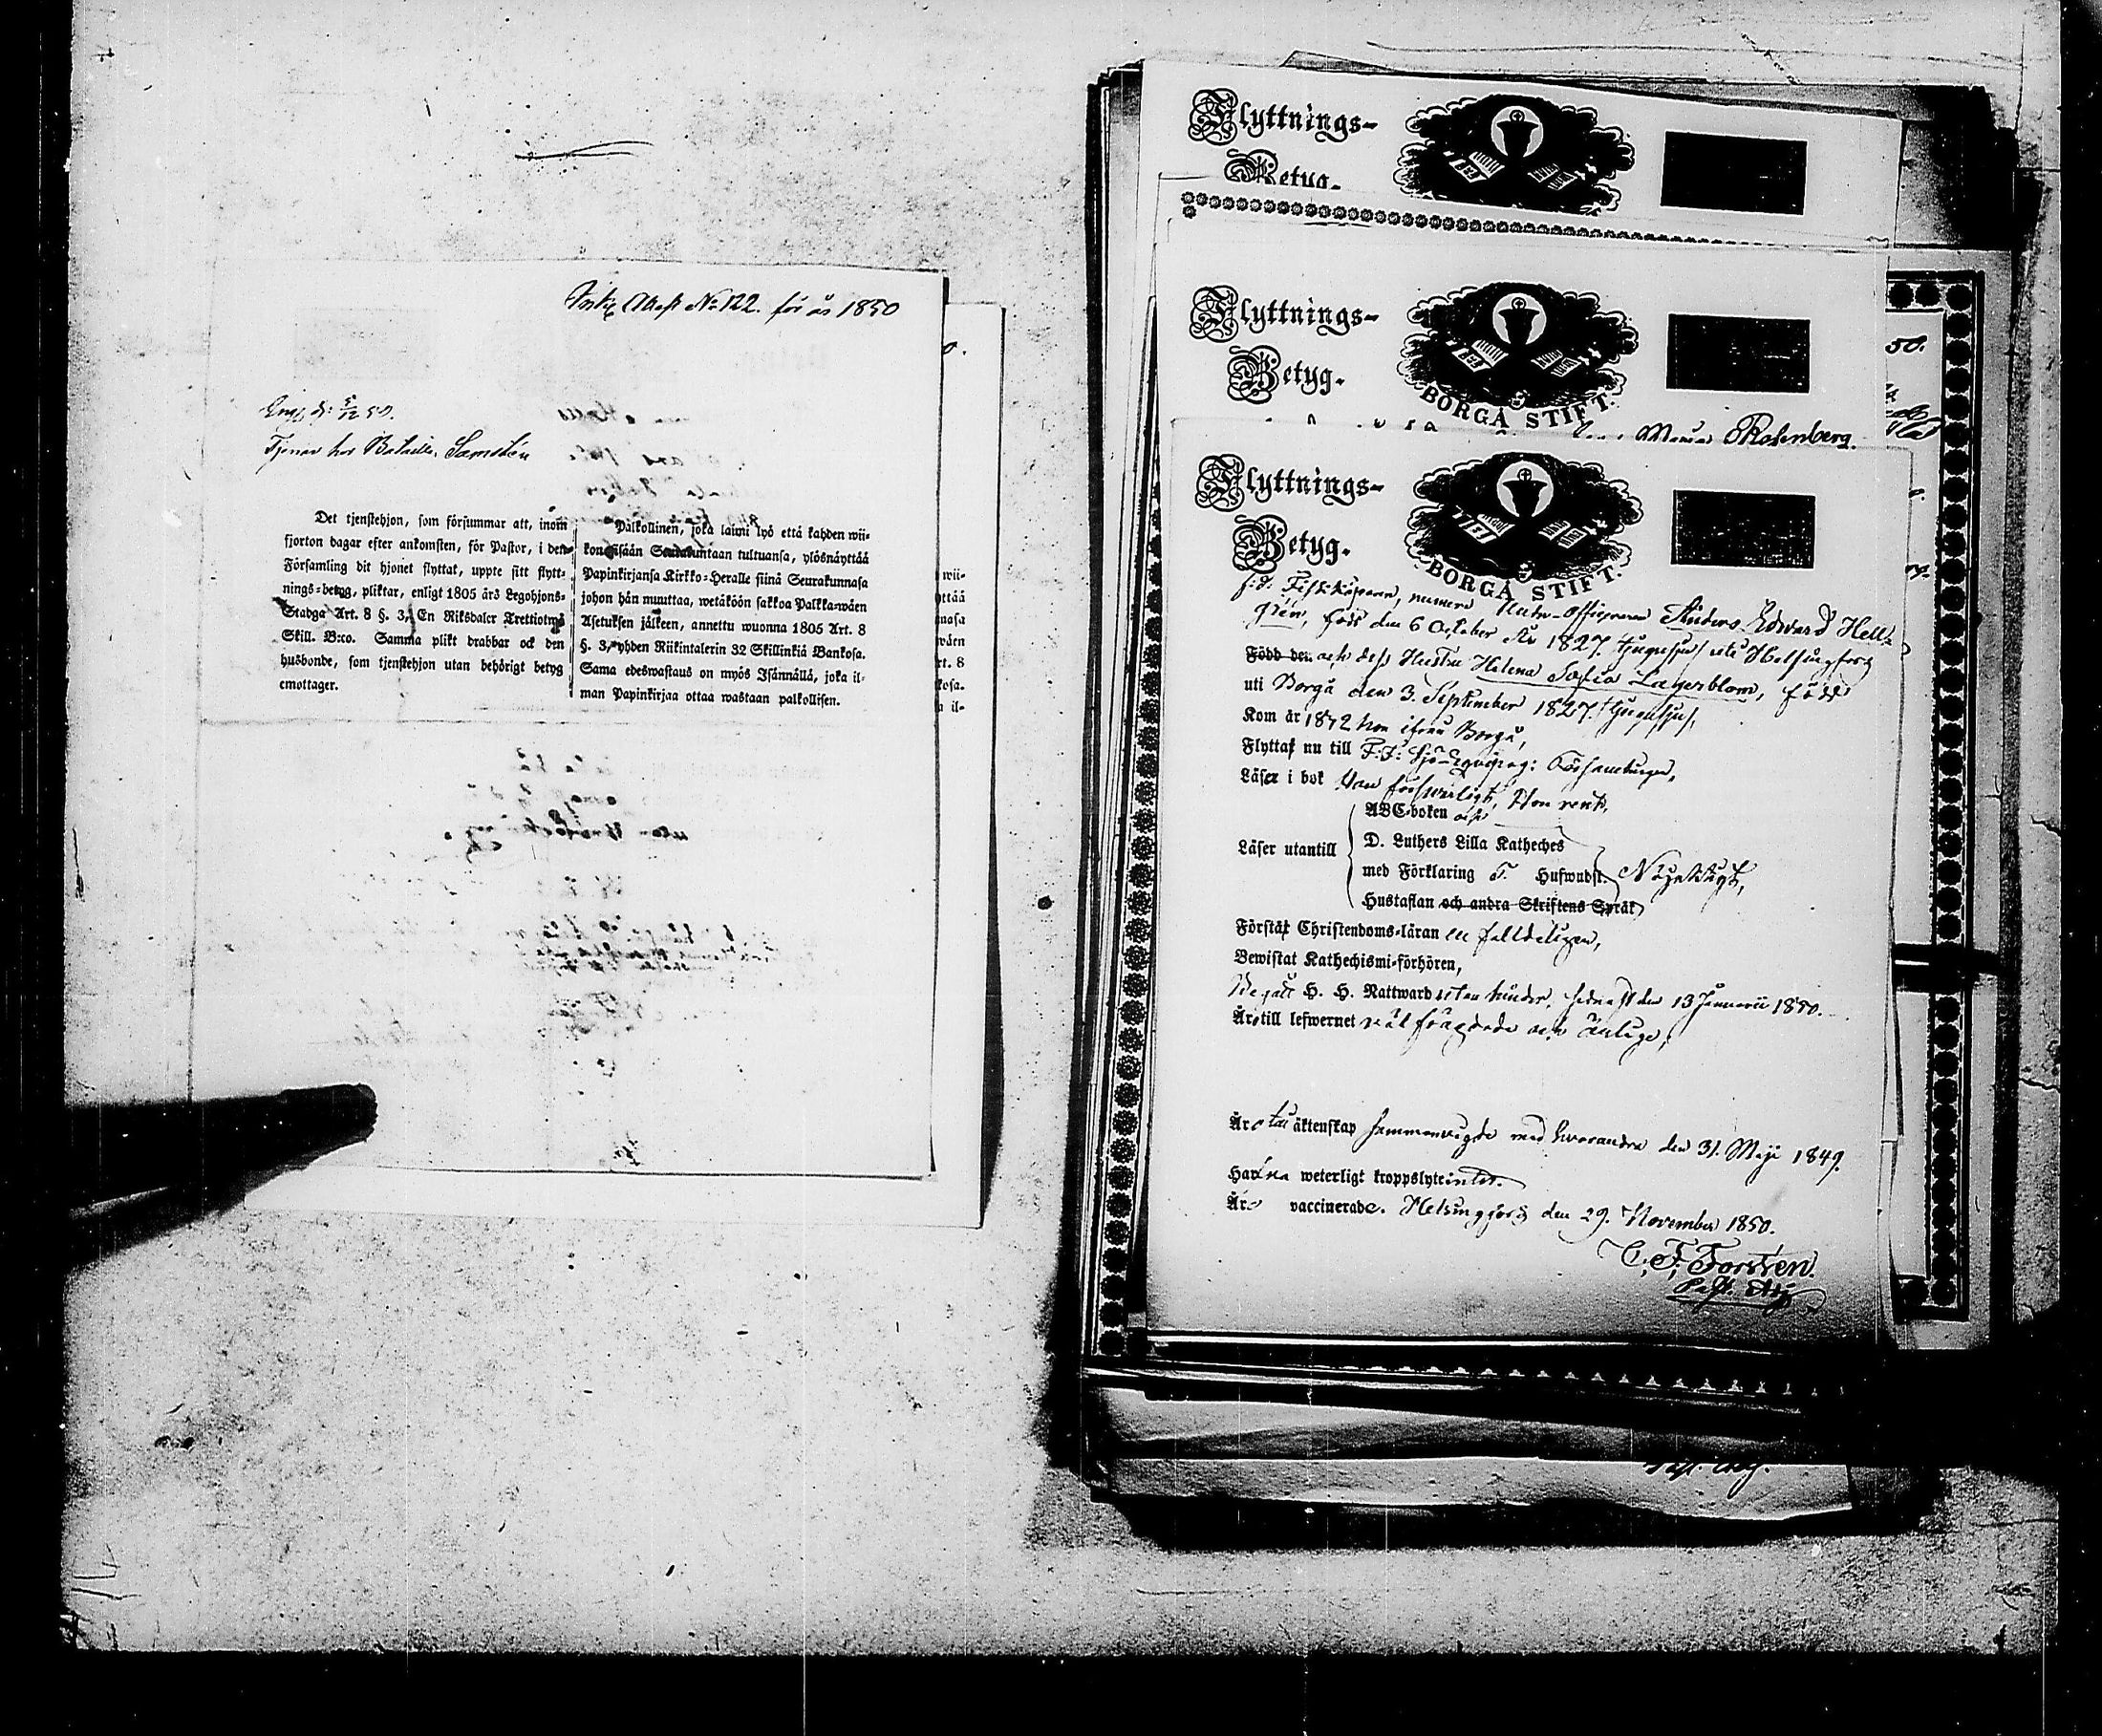 Attest No 122. för år 1850
Tjenar hos
Det tjenstehjon, som försummar att, inom
fjorton dagar efter ankomsten, för Pastor, i den
Församling dit hjonet flyttat, uppte sitt flytt-
nings-betyg, pliktar, enligt 1805 års Legohjons-
Stadga Art. 8 §. 3, En Riksdaler Trettiotwå
Skill. B:co. Samma plikt drabbar ock den
husbonde, som tjenstehjon utan behörigt betyg
emottager.
Palkollinen, joka laimi lyö että kahden wii-
konsisään Seurakuntaan tultuansa, ylösnäyttää
Papinkirjansa Kirkko-Heralle siinä Seurakunnasa
johon hän muuttaa, wetäköön sakkoa Palkka-wäen
Asetuksen jälkeen, annettu wuonna 1805 Art. 8
§. 3, yhden Riikintalerin 32 Skillinkiä Bankosa.
Sama edeswastaus on myös Isännällä, joka il-
man Papinkirjaa ottaa wastaan palkollisen.
wii-
yttää
nasa
wäen
rt. 8
kosa.
a il-
Flyttnings-
Betyg.
Flyttnings-
Betyg.
BORGÅ STIFT.
Maria Rosenberg.
50.
Flyttnings-
Betyg.
BORGÅ STIFT.
f.d. numera Under-officeraren Anders Edvard Hell-
gren, född den 6 October År 1827. tjugusju uti Helsingfors
Född den och dess Hustru Helena Sofia Lagerblom, född
uti Borgå den 3. September 1827. tjugusju,
Kom år 1842 hon ifrån Borgå,
Flyttat nu till F.F. Sjö-Eqvipag: Församlingen,
Läser i bok Han försvarligt, Hon rent,
ABC-boken och
Läser utantill D. Luthers Lilla Katheches
med Förklaring T. Hufwudst. Nöjaktigt,
Hustaflan och andra Skriftens Språk
Förstår Christendoms-läran enfalldeligen,
Bewistat Kathechismi-förhören,
Begått H. H. Nattward utan hinder, sednast den 13 Januarii 1850.
Äro till lefwernet väl frägdade och ärlige,
Äro till äktenskap sammanvigde med hvarandra den 31. Maji 1849.
Hafwa weterligt kroppslyte intet.
Äro vaccinerade. Helsingfors den 29. November 1850.
C. F. Forstén.
Past. Adj.
Past. Adj.